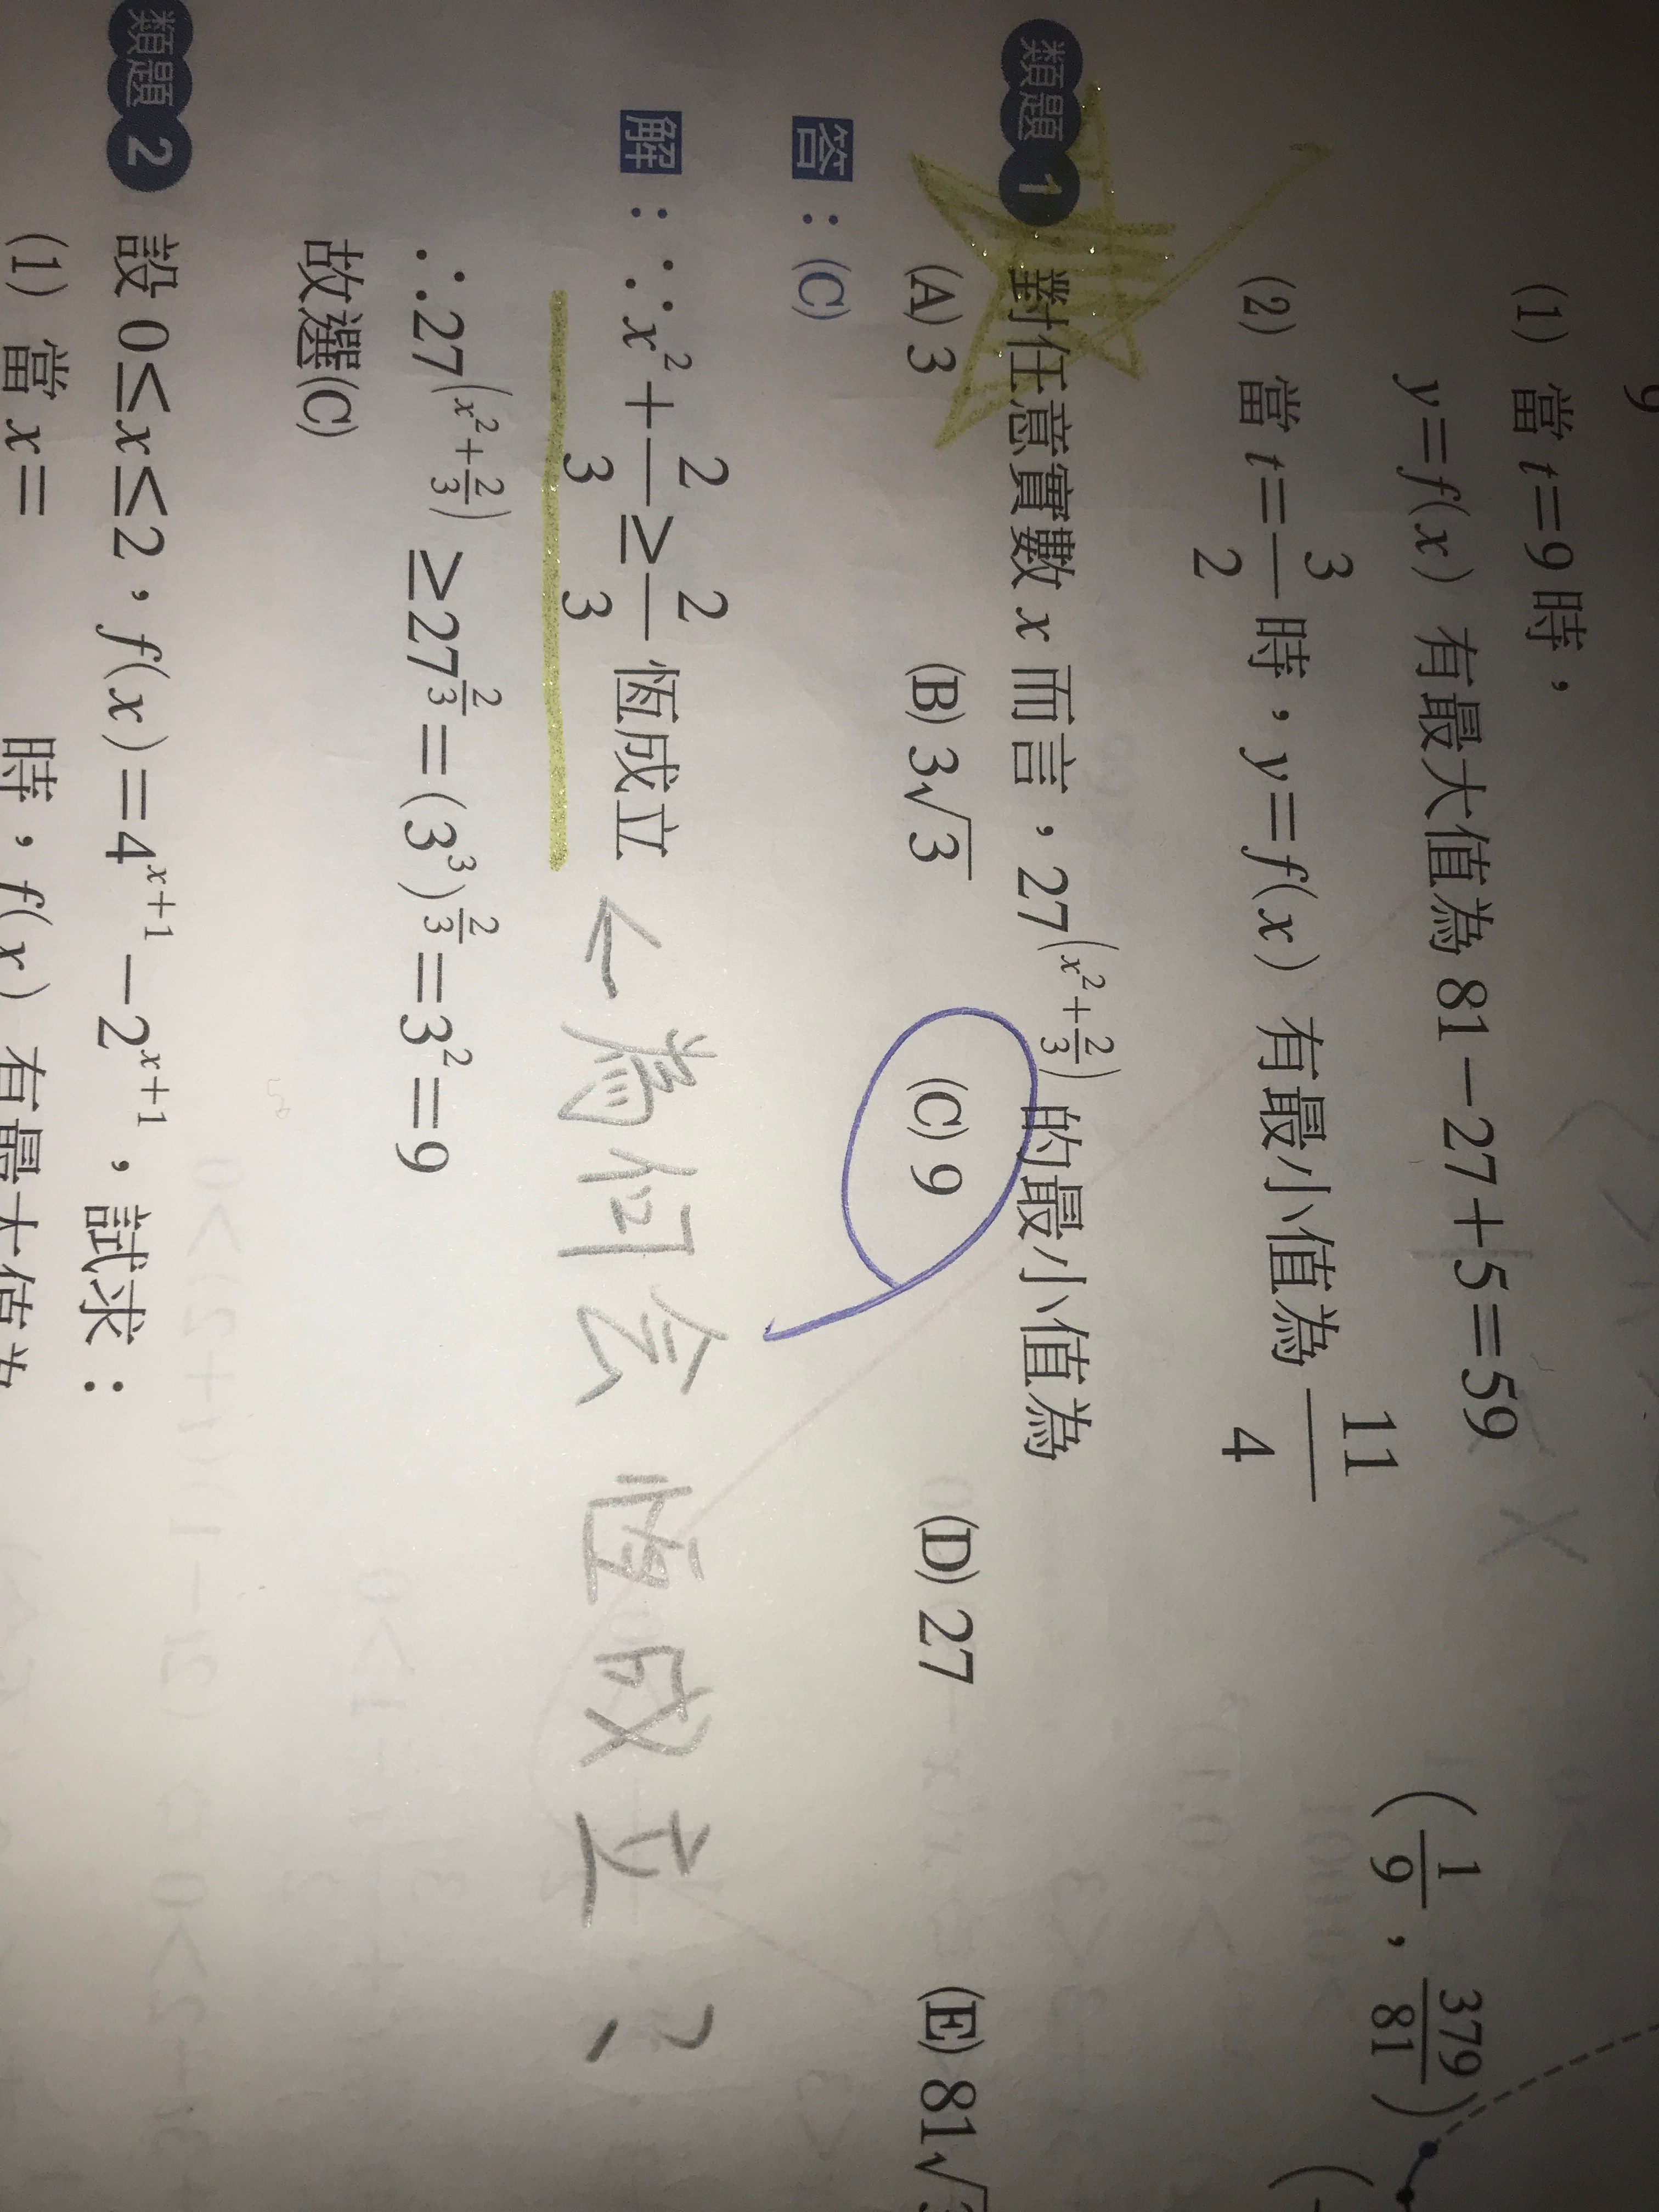 (1) 當 t=9 時，
y=f(x) 有最大值為 81−27+5=59
(1/9，379/81)
(2) 當 t=3/2 時，y=f(x) 有最小值為 11/4
類題 1 對任意實數 x 而言，27^(x²+2/3) 的最小值為
(A) 3 (B) 3√3 (C) 9 (D) 27 (E) 81√
答：(C)
解：∵x²+2/3≥2/3 恆成立 ← 為何会恆成立？
∴27^(x²+2/3)≥27^(2/3)=(3³)^(2/3)=3²=9
故選(C)
類題 2 設 0≤x≤2，f(x)=4^(x+1)−2^(x+1)，試求：
(1) 當 x= 時，f(x) 有最大值為